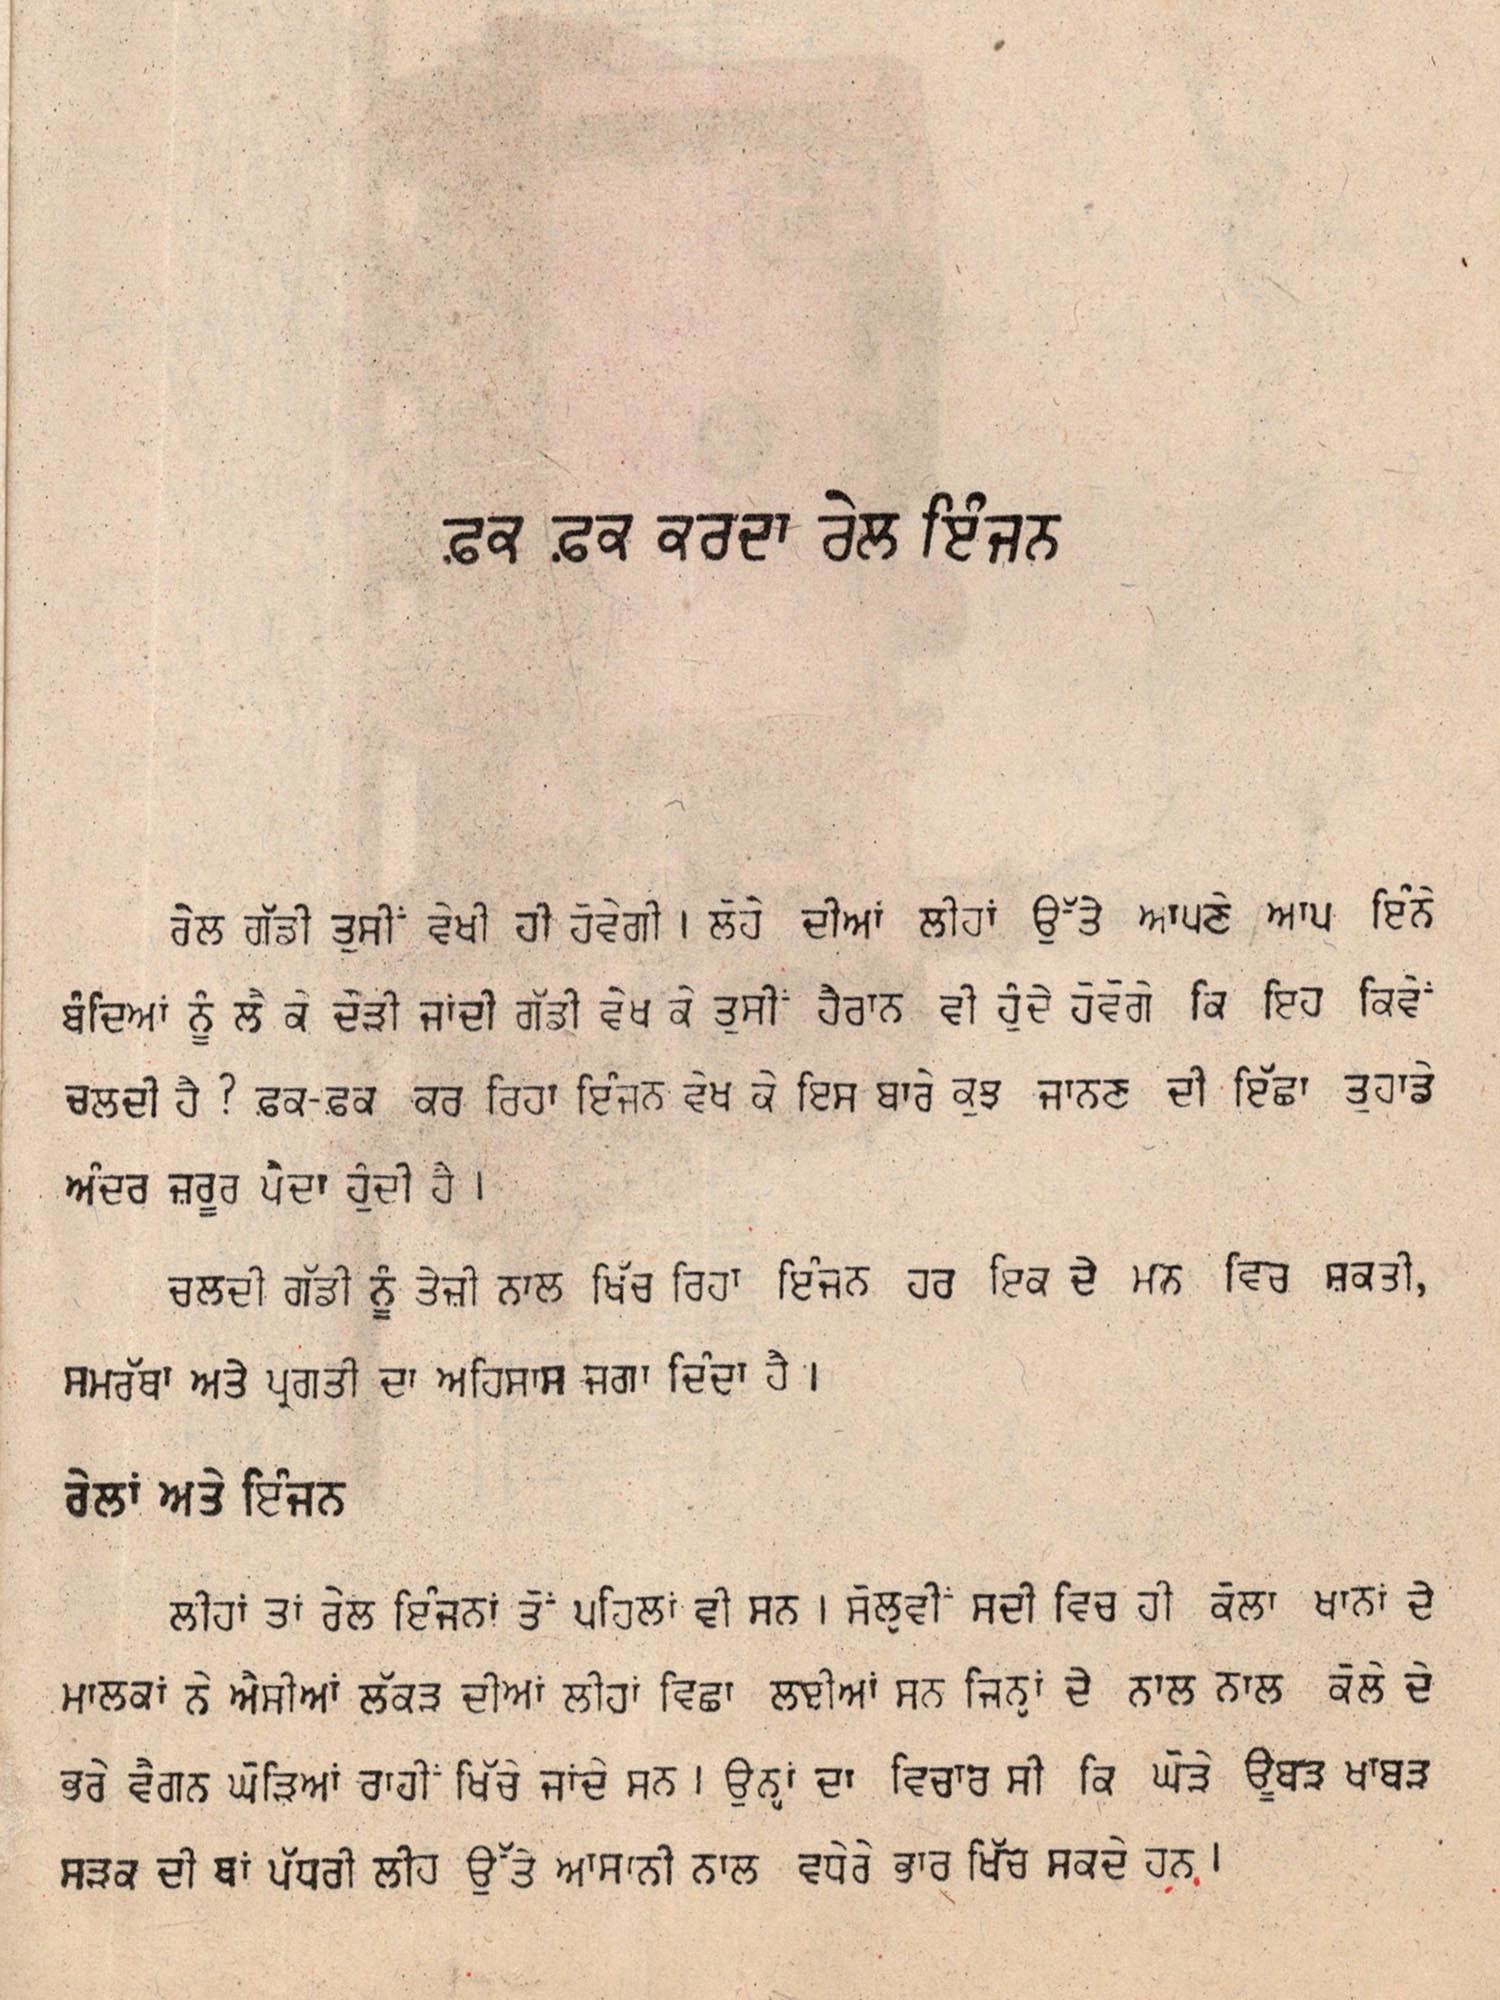 ਫ਼ਕ ਫ਼ਕ ਕਰਦਾ ਰੇਲ ਇੰਜਨ
ਰੇਲ ਗੱਡੀ ਤੁਸੀਂ ਵੇਖੀ ਹੀ ਹੋਵੇਗੀ । ਲੋਹੇ ਦੀਆਂ ਲੀਹਾਂ ਉੱਤੇ ਆਪਣੇ ਆਪ ਇੰਨੇ
ਬੰਦਿਆਂ ਨੂੰ ਲੈ ਕੇ ਦੌੜੀ ਜਾਂਦੀ ਗੱਡੀ ਵੇਖ ਕੇ ਤੁਸੀਂ ਹੈਰਾਨ ਵੀ ਹੁੰਦੇ ਹੋਵੋਗੇ ਕਿ ਇਹ ਕਿਵੇਂ
ਚਲਦੀ ਹੈ ? ਫ਼ਕ-ਫ਼ਕ ਕਰ ਰਿਹਾ ਇੰਜਨ ਵੇਖ ਕੇ ਇਸ ਬਾਰੇ ਕੁਝ ਜਾਨਣ ਦੀ ਇੱਛਾ ਤੁਹਾਡੇ
ਅੰਦਰ ਜ਼ਰੂਰ ਪੈਦਾ ਹੁੰਦੀ ਹੈ ।
ਚਲਦੀ ਗੱਡੀ ਨੂੰ ਤੇਜ਼ੀ ਨਾਲ ਖਿੱਚ ਰਿਹਾ ਇੰਜਨ ਹਰ ਇਕ ਦੇ ਮਨ ਵਿਚ ਸ਼ਕਤੀ,
ਸਮਰੱਥਾ ਅਤੇ ਪ੍ਰਗਤੀ ਦਾ ਅਹਿਸਾਸ ਜਗਾ ਦਿੰਦਾ ਹੈ ।
ਰੇਲਾਂ ਅਤੇ ਇੰਜਨ
ਲੀਹਾਂ ਤਾਂ ਰੇਲ ਇੰਜਨਾਂ ਤੋਂ ਪਹਿਲਾਂ ਵੀ ਸਨ । ਸੋਲ੍ਹਵੀਂ ਸਦੀ ਵਿਚ ਹੀ ਕੋਲਾ ਖਾਨਾਂ ਦੇ
ਮਾਲਕਾਂ ਨੇ ਐਸੀਆਂ ਲੱਕੜ ਦੀਆਂ ਲੀਹਾਂ ਵਿਛਾ ਲਈਆਂ ਸਨ ਜਿਨ੍ਹਾਂ ਦੇ ਨਾਲ ਨਾਲ ਕੋਲੇ ਦੇ
ਭਰੇ ਵੈਗਨ ਘੋੜਿਆਂ ਰਾਹੀਂ ਖਿੱਚੇ ਜਾਂਦੇ ਸਨ । ਉਨ੍ਹਾਂ ਦਾ ਵਿਚਾਰ ਸੀ ਕਿ ਘੋੜੇ ਊਬੜ ਖਾਬੜ
ਸੜਕ ਦੀ ਥਾਂ ਪੱਧਰੀ ਲੀਹ ਉੱਤੇ ਆਸਾਨੀ ਨਾਲ ਵਧੇਰੇ ਭਾਰ ਖਿੱਚ ਸਕਦੇ ਹਨ ।